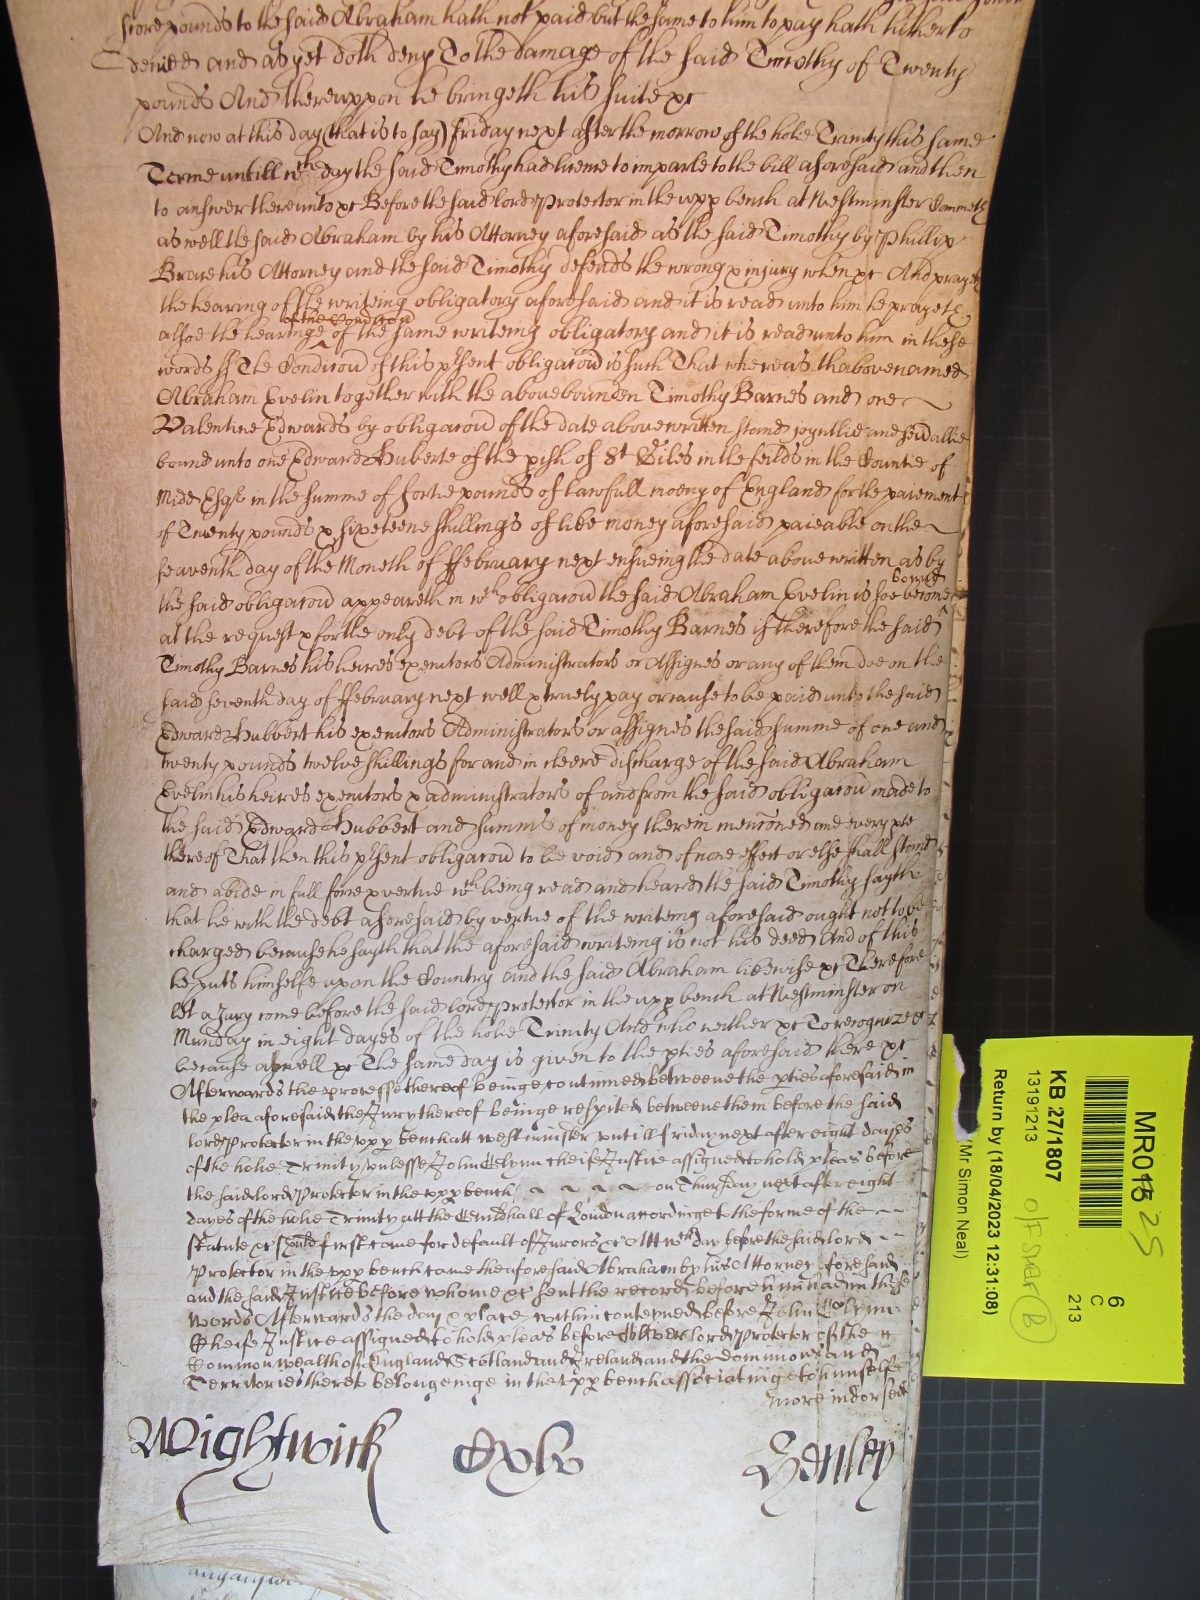 score pounds to the said Abraham hath not paid but the same to him to pay hath hitherto
denied and as yet doth deny To the damage of the said Timothy of Twenty
pounds And thereuppon he bringeth his suite &c
And now at this day (that is to say) friday next after the morrow of the holie Trinity this same
Terme untill wch day the said Timothy had licence to imparle to the bill aforesaid and then
to answer thereunto &c Before the said lord Protector in the upp bench at Westminster Commeth
as well the said Abraham by his Attorney aforesaid as the said Timothy by Phillip
Brace his Attorney and the said Timothy defends the wrong & injury when &c And prayeth
the hearing of the writeing obligatory aforesaid and it is read unto him he prayeth
of the Condicon
alsoe the hearinge ^ of the same writeing obligatory and it is read unto him in these
words ss The Condicon of this p'sent obligacon is such That whereas thabovenamed
Abraham Evelin together with the abovebounden Timothy Barnes and one
Valentine Edwards by obligacon of the date abovewritten stand joyntlie and sevallie
bound unto one Edward Huberte of the pish of St Giles in the feilds in the Countie of
Midd Esqr in the summe of fortie pounds of lawfull money of England for the paiement
of Twenty pounds & sixeteene shillings of like money aforesaid paieable on the
seaventh day of the Moneth of ffebruary next ensueing the date above written as by
bound
the said obligacon appeareth in wch obligacon the said Abraham Evelin is soe become ^
at the request & for the only debt of the said Timothy Barnes if therefore the said
Timothy Barnes his heires executors Administrators or Assignes or any of them doe on the
said seventh day of ffebruary next well & truely pay or cause to be paid unto the said
Edward Hubbert his executors Administrators or assignes the said summe of one and
twenty pounds twelve shillings for and in cleere discharge of the said Abraham
Evelin his heires executors & administrators of and from the said obligacon made to
the said Edward Hubbert and summs of money therein mencioned and every pte
thereof That then this p'sent obligacon to be void and of none effect or else shall stand
and abide in full force & vertue wch being read and heard the said Timothy sayth
that he with the debt aforesaid by vertue of the writeing aforesaid ought not to be
charged because he sayth that the aforesaid writeing is not his deed And of this
he puts himselfe upon the Country And the said Abraham likewise &c Therefore
let a Jury come before the said lord Protector in the upp bench at Westminster on
Munday in eight dayes of the holie Trinity And who neither &c To recognize &c
because aswell &c The same day is given to the pties aforesaid there &c
Afterwards the processe thereof beinge continued betweene the pties aforesaid in
the plea aforesaid the Jury thereof beinge respited betweene them before the said
lord Protector in the upp bench att westminster untill friday next after eight dayes
of the holie Trinity unlesse John Glynn cheife Justice assigned to hold pleas before
the said lord Protector in the upp bench on Thursday next after eight
dayes of the holie Trinity att the Guildhall of London accordinge to the forme of the
statute &c should first come for default of Jurors &c Att wch day before the said lord
Protector in the upp bench came the aforesaid Abraham by his Attorney aforesaid
and the said Justice before whome &c sent the record before him had in these
words Afterwards the day & place within conteyned before John Glynn
Cheife Justice assigned to hold pleas before Oliver lord Protector of the
Commonwealth of England Scotland and Ireland and the dominions and
Territories thereto belonginge in the upp bench associatinge to himselfe
more indorsed
Wightwick Exlv Henley
MR013 25
KB 27/1807
13191213
6
C
213
O/F Star B
Return by (18/04/2023 12:31:08)
(Mr Simon Neal)